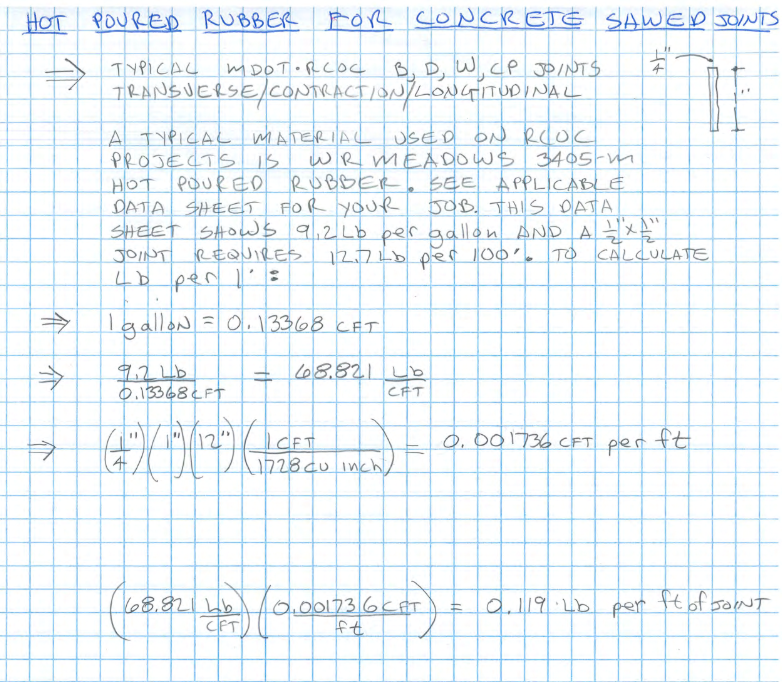 HOT POURED RUBBER FOR CONCRETE SAWED JOINTS
⇒ TYPICAL MDOT·RCOC B, D, W, CP JOINTS
TRANSVERSE/CONTRACTION/LONGITUDINAL
1/4"
1"
A TYPICAL MATERIAL USED ON RCOC
PROJECTS IS WR MEADOWS 3405-M
HOT POURED RUBBER. SEE APPLICABLE
DATA SHEET FOR YOUR JOB. THIS DATA
SHEET SHOWS 9.2 Lb per gallon AND A 1/2" x 1/2"
JOINT REQUIRES 12.7 Lb per 100'. TO CALCULATE
Lb per 1':
⇒ 1 gallon = 0.13368 CFT
⇒ 9.2 Lb / 0.13368 CFT = 68.821 Lb / CFT
⇒ (1/4")(1")(12")(1 CFT / 1728 cu inch) = 0.001736 CFT per ft
(68.821 Lb / CFT)(0.001736 CFT / ft) = 0.119 Lb per ft of JOINT